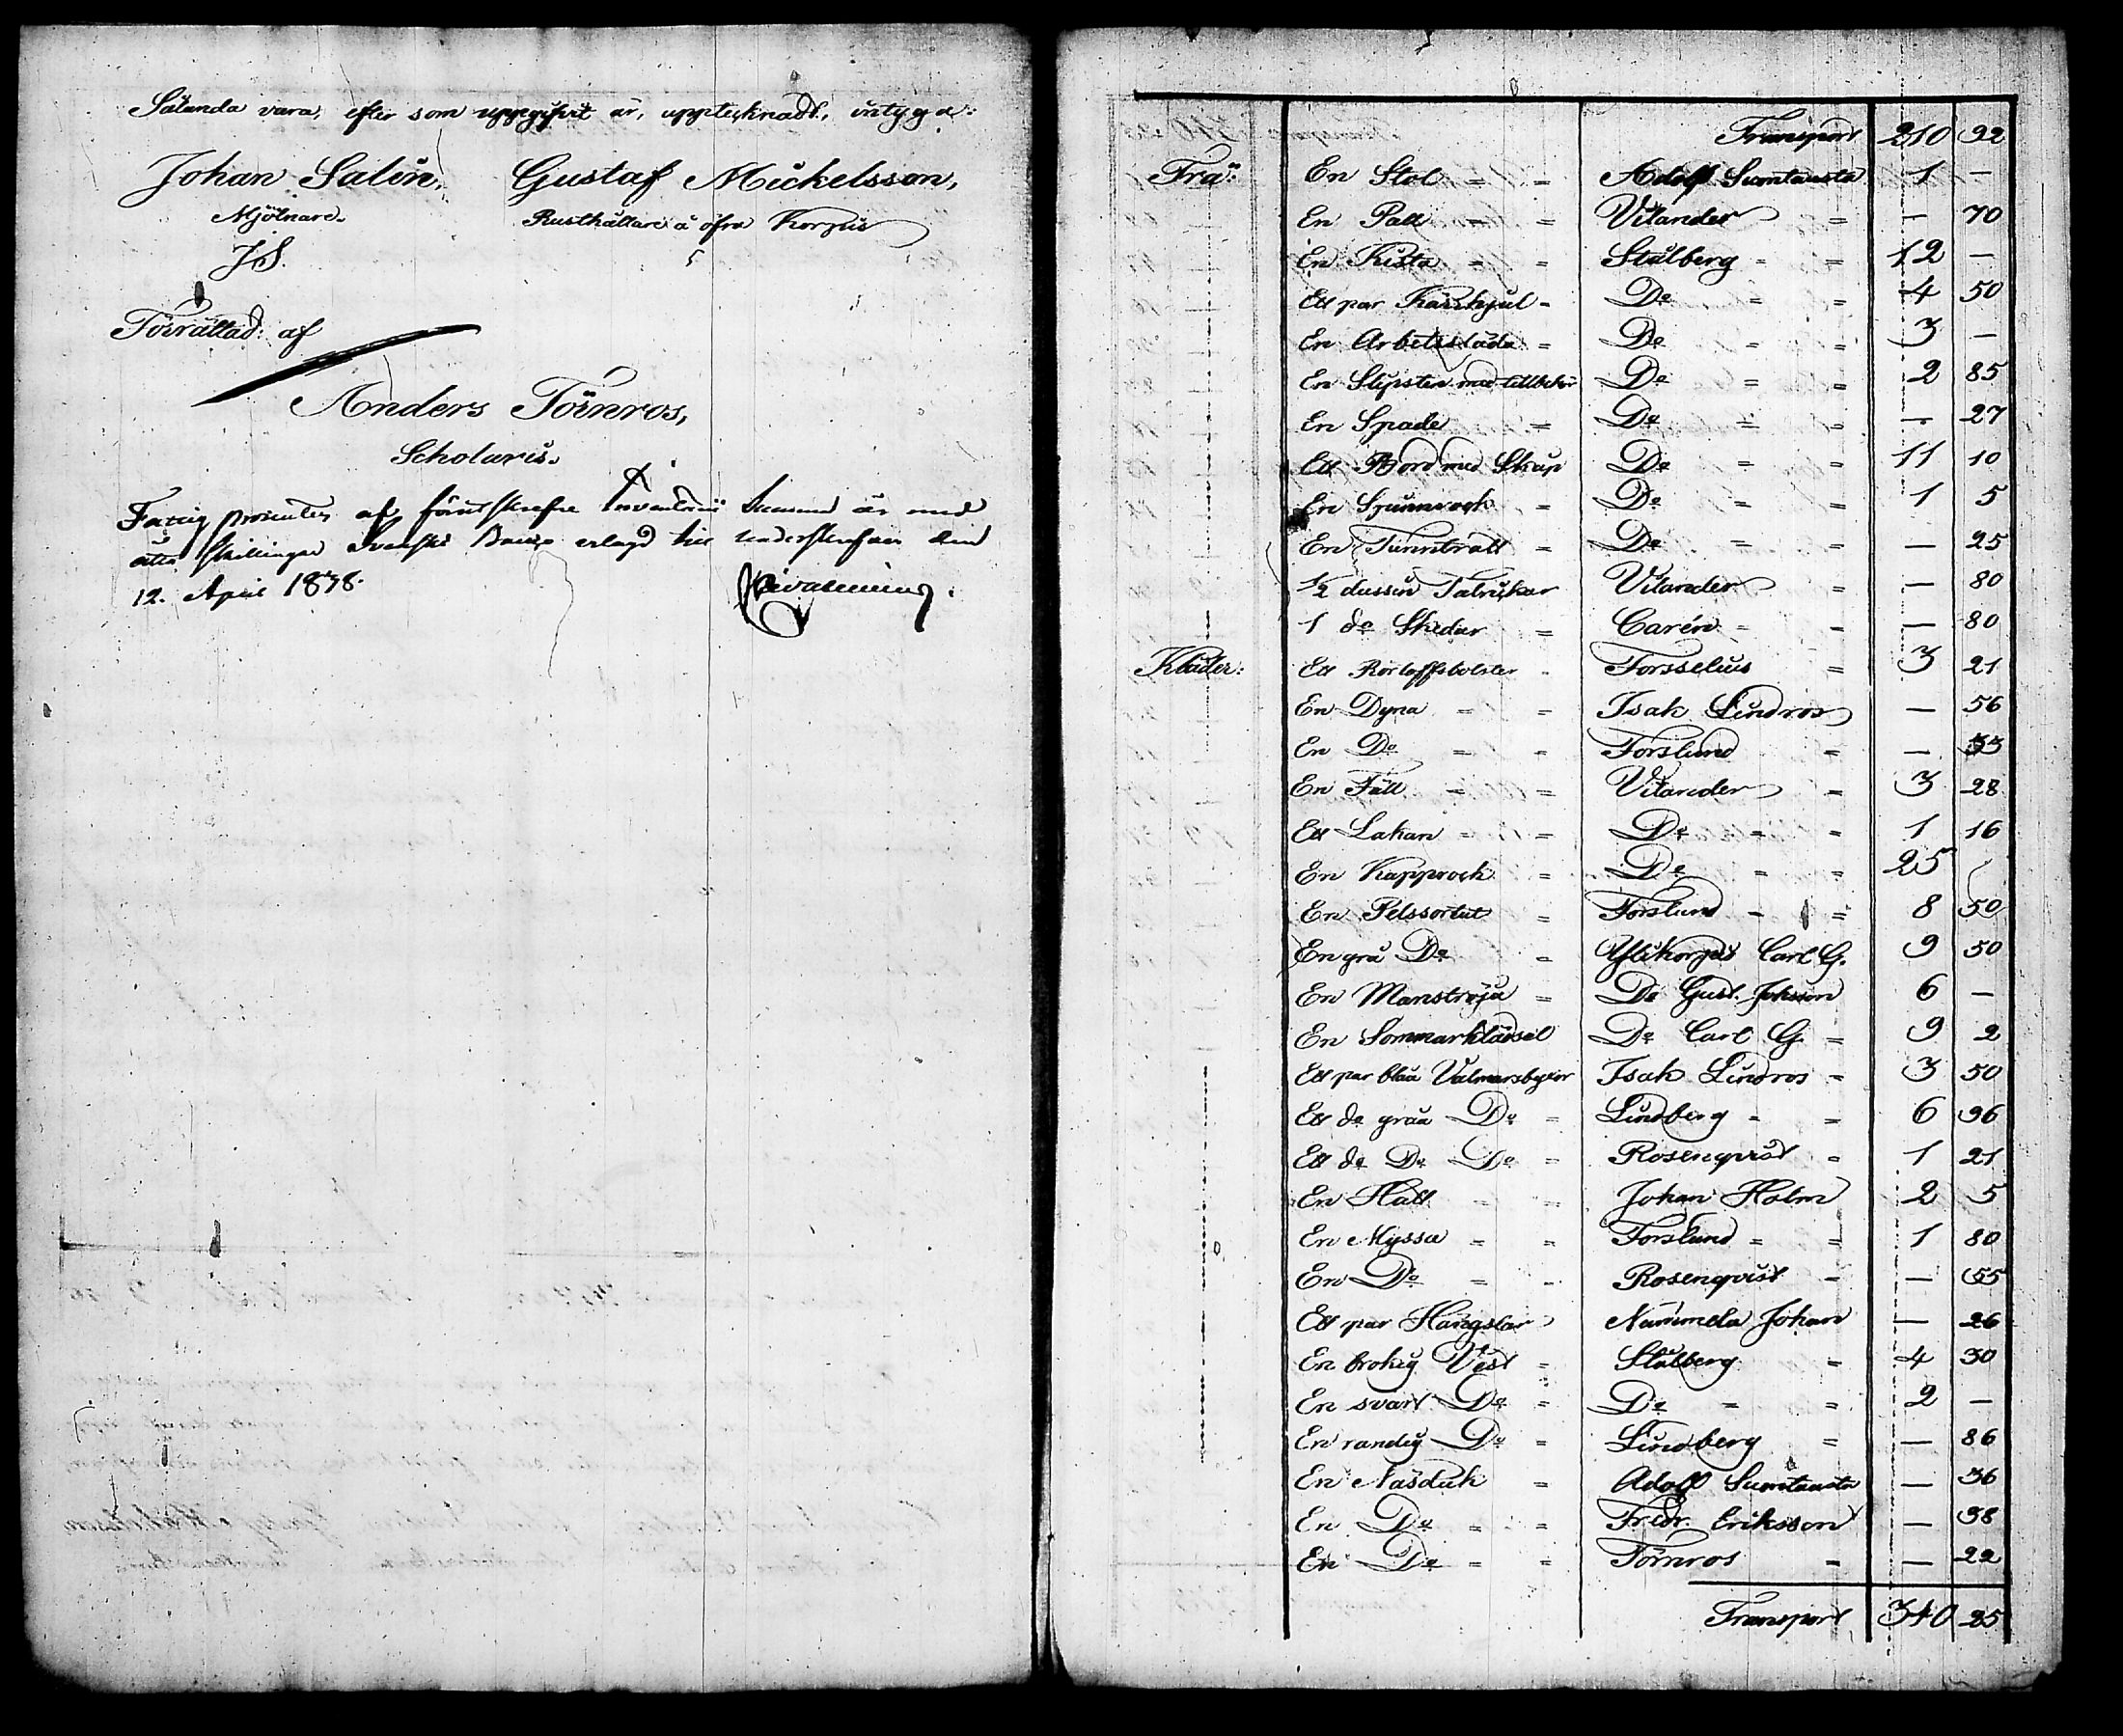 Sålunda vara, efter som uppgifvit är, upptecknadt, intyga:
Johan Salin, Gustaf Mickelsson,
Mjölnare. Rusthållare å öfra Korpis
J S.
Förrättad: af
Anders Törnros,
Scholaris.
Fattig procenten af förutskrefne Inventarii Summa är med
åtta skillingar Svenskt Banco erlagd till undersknefven den
12. April 1838.
Transport 210 92
Trä: En Stol = = Adolf Suontausta 1 —
En Pall = = Vilander = — 70
En Kista = = Stålberg = = 12 —
Ett par Kärrhjul = Do = = 4 50
En Arbetssläda = Do = = 3 —
En Slipsten med tillbehör Do = = 2 85
En Spade = Do = = — 27
Ett Bord med Skåp Do = = 11 10
En Spinnrock = Do = = 1 5
En Tunntratt = Do = = — 25
1/2 dussin Talrickar Vilander = — 80
1 do Skedar = Carén = = — 80
Kläder: Ett Börloffsbolster = Forsselius = 3 21
En Dyna = = Isak Lindros — 56
En Do = = Forslund = — 53
En Fäll = = Vilander = 3 28
Ett Lakan = = Do = = 1 16
En Kapprock = Do = = 25
En Pelssortut = Forslund = = 8 50
En grå Do = Ylikorpis Carl G. 9 50
En Manströja = Do Gust. Johsson 6 —
En Sommarklädsel Do Carl G = 9 2
Ett par blåa Valmarsbyxor Isak Lindros = 3 50
Ett do gråa Do = Lindberg = = 6 96
Ett do Do Do = Rosenqvist = 1 21
En Hatt = = Johan Holm 2 5
En Myssa = = Forslund = = 1 80
En Do = = Rosenqvist = — 55
Ett par Hängslar Nummela Johan — 26
En brokig Väst = Stålberg = 4 30
En svart Do = Do = = 2 —
En randig Do = Lindberg = — 86
En Näsduk = Adolf Suontausta — 36
En Do = = Fredr. Eriksson — 38
En Do = = Törnros = — 22
Transport 340 25